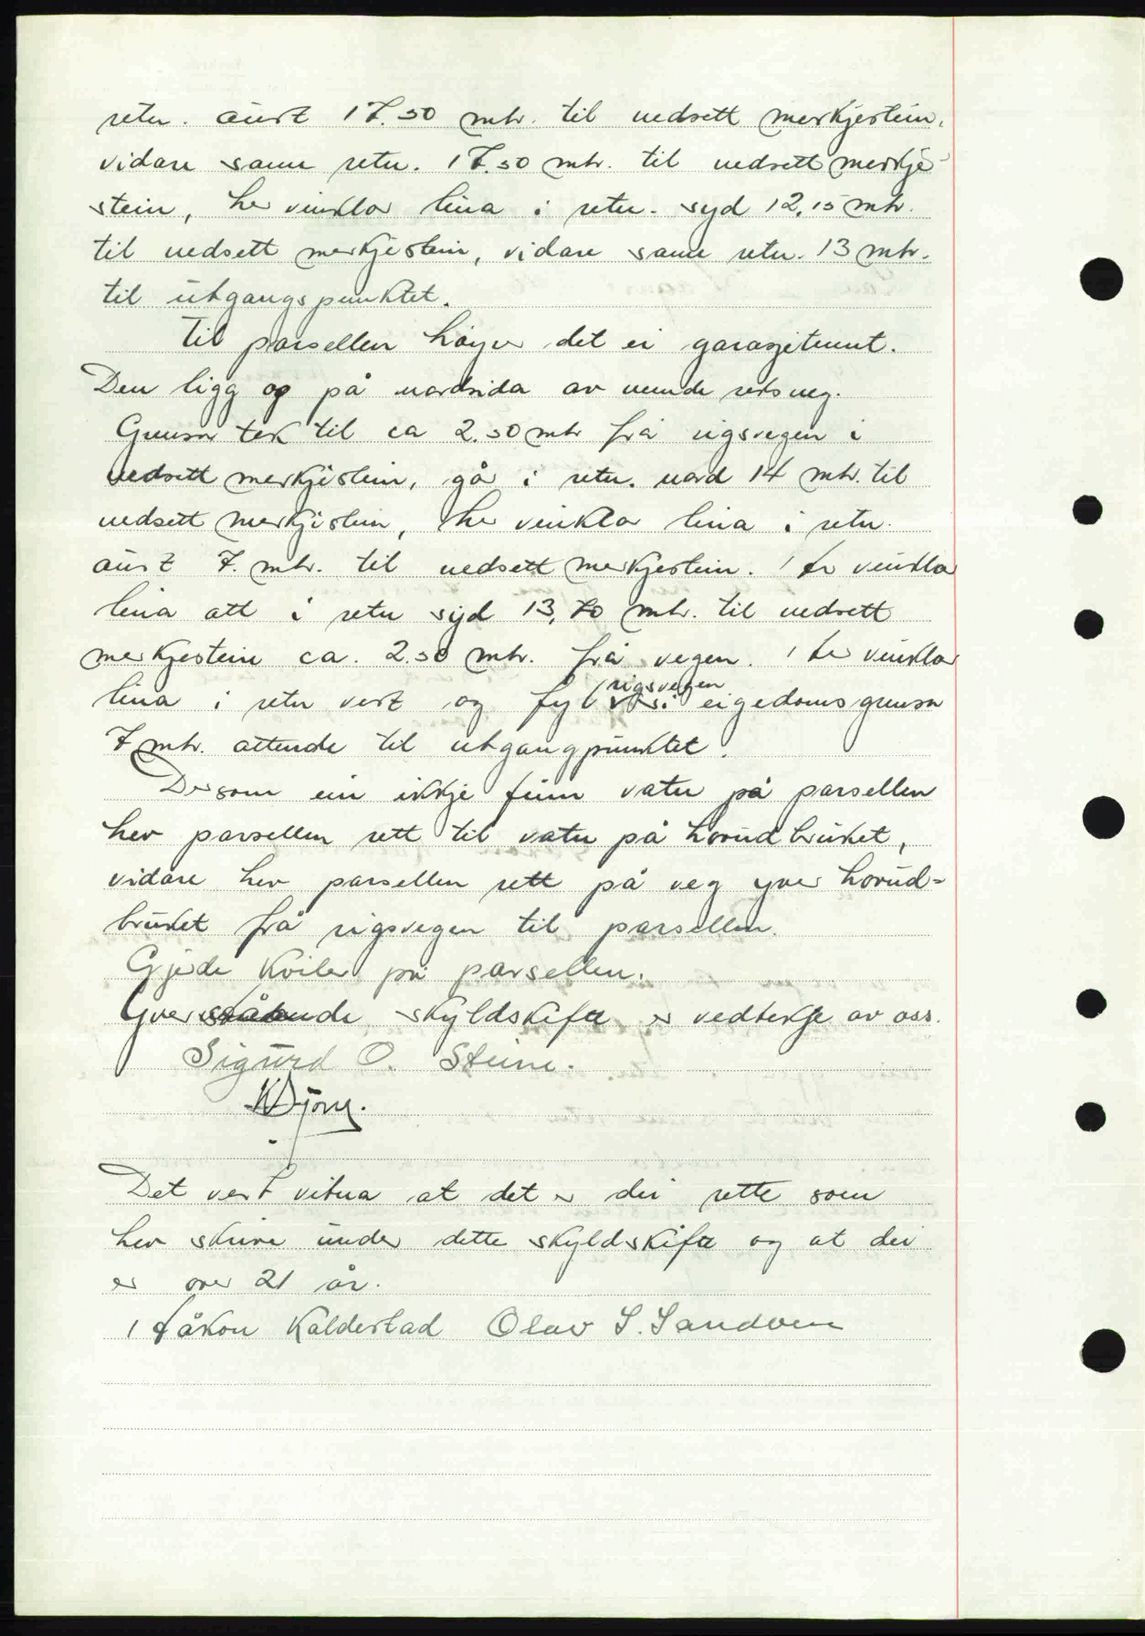 retn. aust 17.50 mtr. til nedsett merkjestein,
vidare same retn. 17.50 mtr. til nedsett merkje-
stein, her vinklar lina i retn. syd 12,15 mtr.
til nedsett merkjestein, vidare same retn. 13 mtr.
til utgangspunktet.
Til parsellen høyrer det ei garasjetomt.
Den ligg og på nordsida av nemnde veg.
Grensa tek til ca 2.50 mtr frå rigsvegen i
nedsett merkjestein, går i retn. nord 14 mtr. til
nedsett merkjestein, her vinklar lina i retn.
aust 7. mtr. til nedsett merkjestein. Her vinklar
lina att i retn syd 13,70 mtr. til nedsett
merkjestein ca. 2.50 mtr. frå vegen. Her vinklar
lina i retn vest og fyl rigsvegen si eigedomsgrensa
7 mtr. attende til utgangpunktet.
Dersom ein ikkje finn vatn på parsellen
hev parsellen rett til vatn på hovudbruket,
vidare hev parsellen rett på veg yver hovud-
bruket frå rigsvegen til parsellen.
Gjerde kviler på parsellen.
Yverståande skyldskifte er vedtekje av oss.
Sigurd O. Steine.
Det vert vitna at det er dei rette som
hev skrive under dette skyldskifte og at dei
er over 21 år.
Håkon Kaldestad Olav S. Sandven